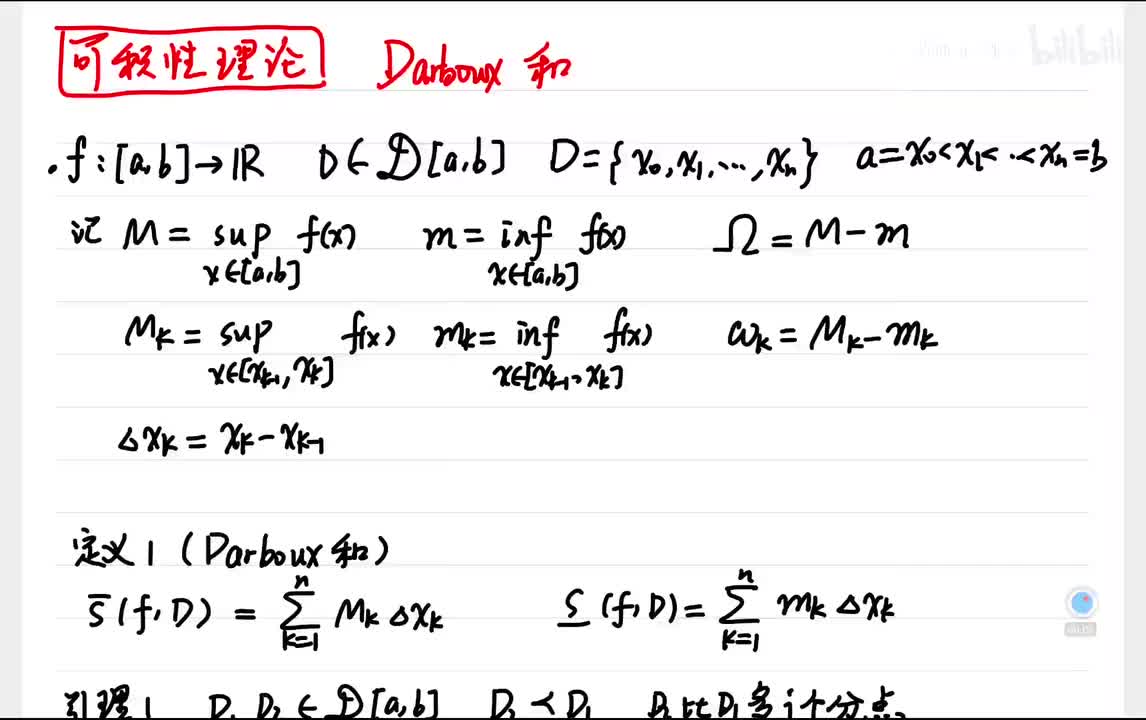 可积性理论 Darboux 和
bilibili
. f : [a,b] → ℝ D ∈ 𝒟[a,b] D = {x₀, x₁, ···, xₙ} a = x₀ < x₁ < ·· < xₙ = b
记 M = sup f(x) m = inf f(x) Ω = M − m
x∈[a,b] x∈[a,b]
Mₖ = sup f(x) mₖ = inf f(x) ωₖ = Mₖ − mₖ
x∈[xₖ₋₁, xₖ] x∈[xₖ₋₁, xₖ]
△xₖ = xₖ − xₖ₋₁
定义 1 (Darboux 和)
S̅(f, D) = ∑ₖ₌₁ⁿ Mₖ △xₖ S̲(f, D) = ∑ₖ₌₁ⁿ mₖ △xₖ
引理 1 D₁ D₂ ∈ 𝒟[a,b] D₂ ≺ D₁ D₂比D₁多 i 个分点。